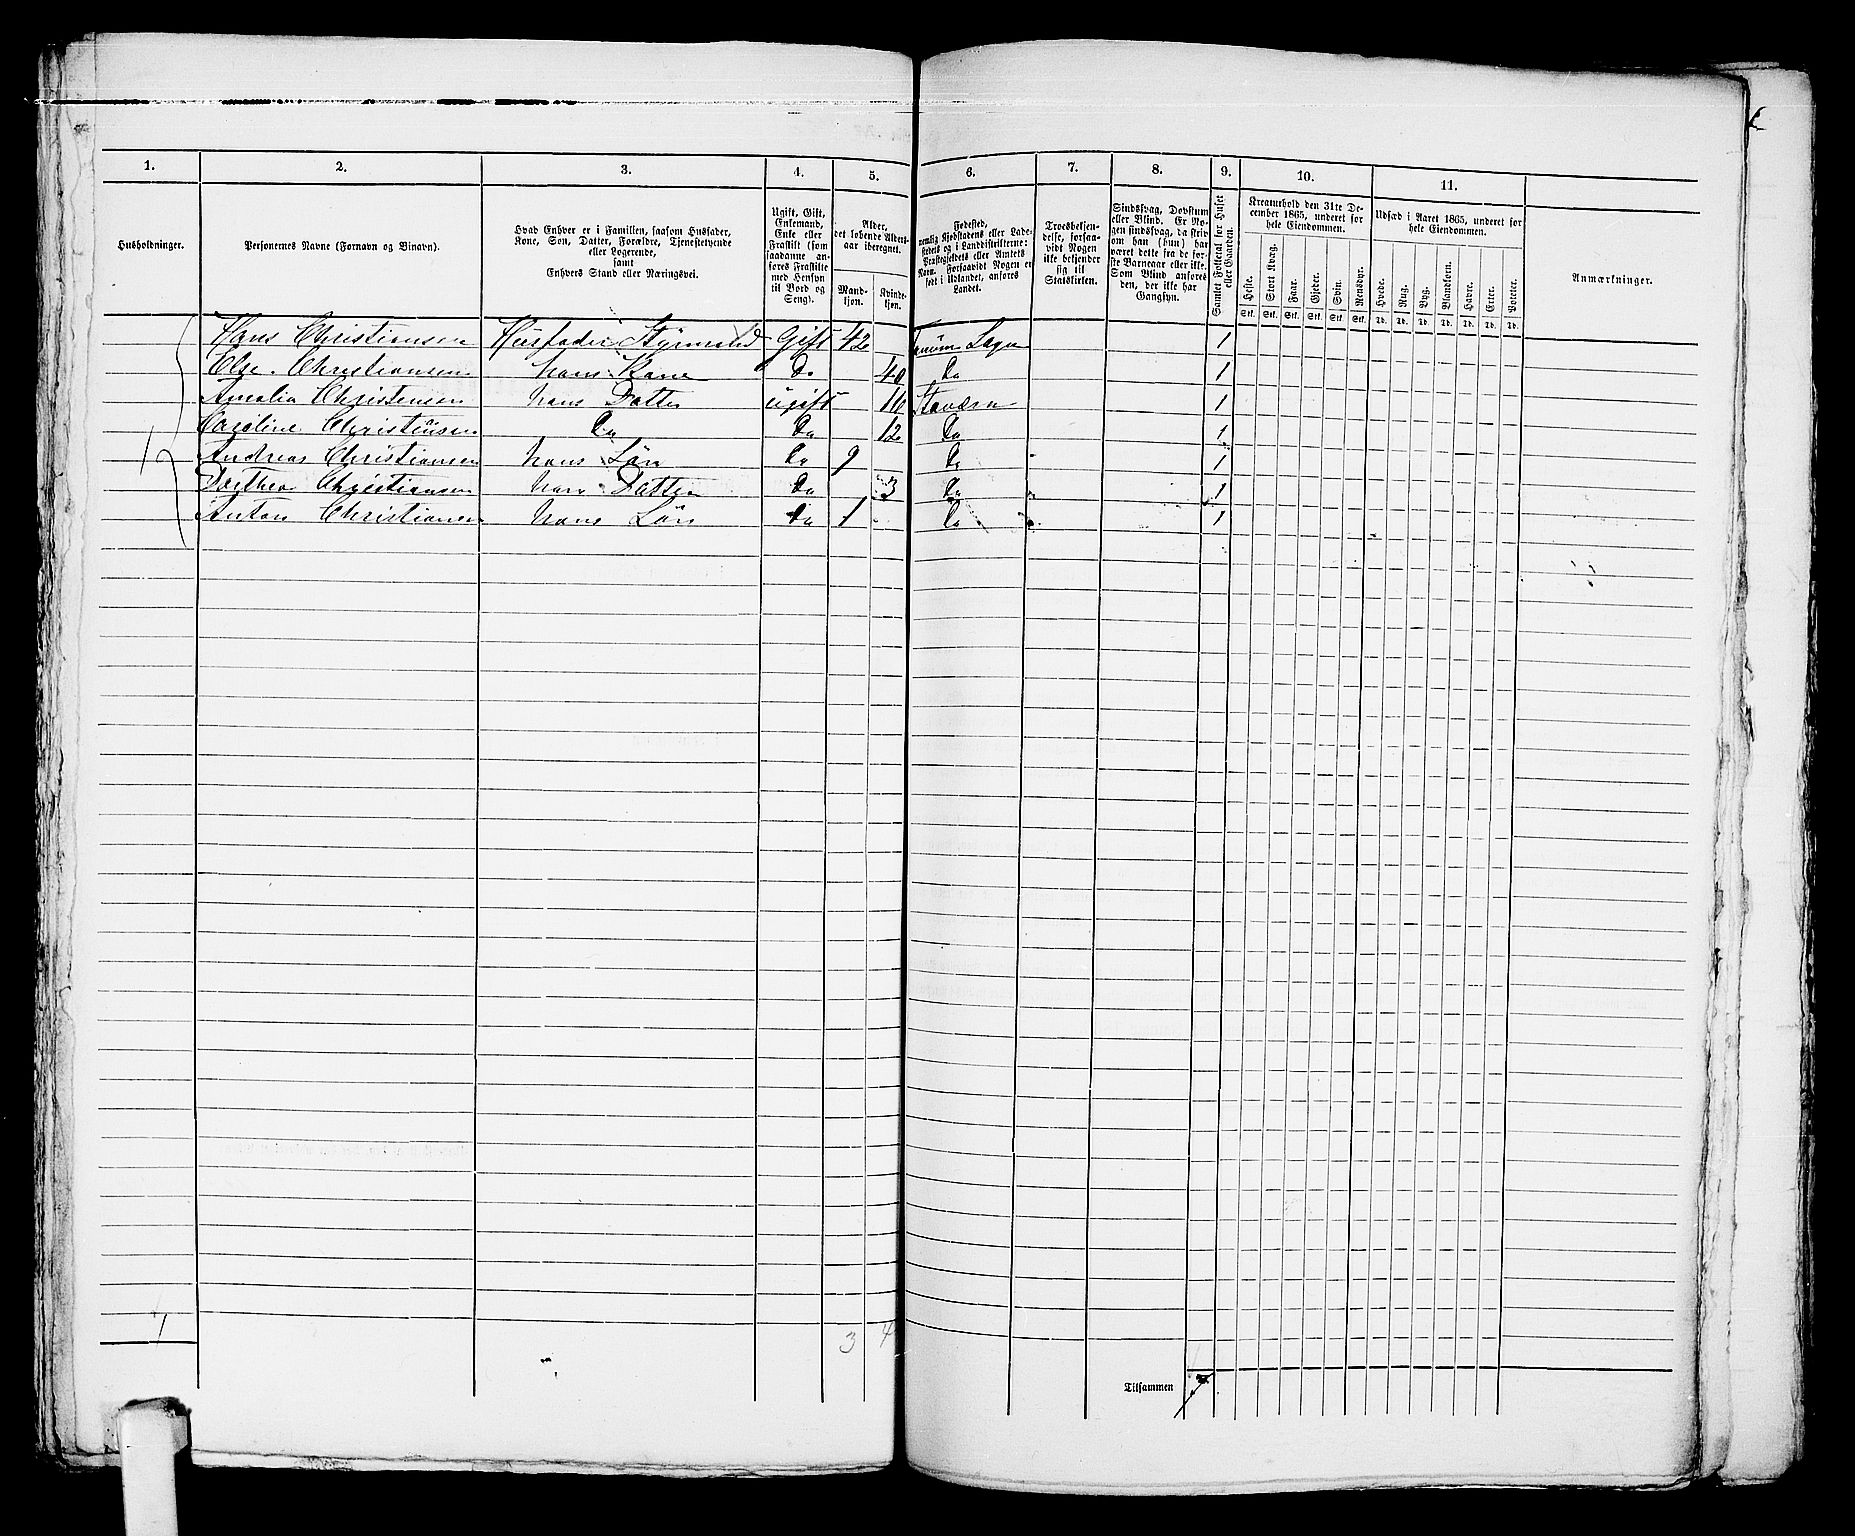 1. 2. 3. 4. 5. 6. 7. 8. 9. 10. 11.
Husholdninger.
Personernes Navne (Fornavn og Binavn).
Hvad Enhver er i Familien, saasom Husfader, Kone, Søn, Datter, Forældre, Tjenestetyende eller Logerende, samt Enhvers Stand eller Næringsvei.
Ugift, Gift, Enkemand, Enke eller Fraskilt (som saadanne anføres Fraskilte med Hensyn til Bord og Seng).
Alder, det løbende Alders-aar iberegnet.
Mand-kjøn. Kvinde-kjøn.
Fødested, nemlig Kjøbstadens eller Ladestedets og i Landdistrikterne: Præstegjeldets eller Amtets Navn. Forsaavidt Nogen er født i Udlandet, anføres Landet.
Troesbekjendelse, forsaavidt Nogen ikke bekjender sig til Statskirken.
Sindssvag, Døvstum eller Blind. Er Nogen sindssvag, da skriv om han (hun) har været dette fra de første Barneaar eller ikke. Som Blind anføres den, der ikke har Gangsyn.
Samlet Folketal for Huset eller Gaarden.
Kreaturhold den 31te December 1865, underet for hele Eiendommen.
Heste. Stort Kvæg. Faar. Gjeder. Svin. Rensdyr.
Stk. Stk. Stk. Stk. Stk. Stk.
Udsæd i Aaret 1865, underet for hele Eiendommen.
Hvede. Rug. Byg. Blandkorn. Havre. Erter. Poteter.
Td. Td. Td. Td. Td. Td. Td.
Anmærkninger.
Hans Christiansen Husfader Styrmand Gift 42 Tanum Sogn 1
Else Christiansen hans Kone Do 40 Do 1
Amalia Christensen hans Datter ugift 16 Stavern 1
Caroline Christiansen Do Do 12 Do 1
Andreas Christiansen hans Søn Do 9 Do 1
Dorthea Christiansen hans Datter Do 3 Do 1
Anton Christiansen hans Søn Do 1 Do 1
1 3 4
Tilsammen 7